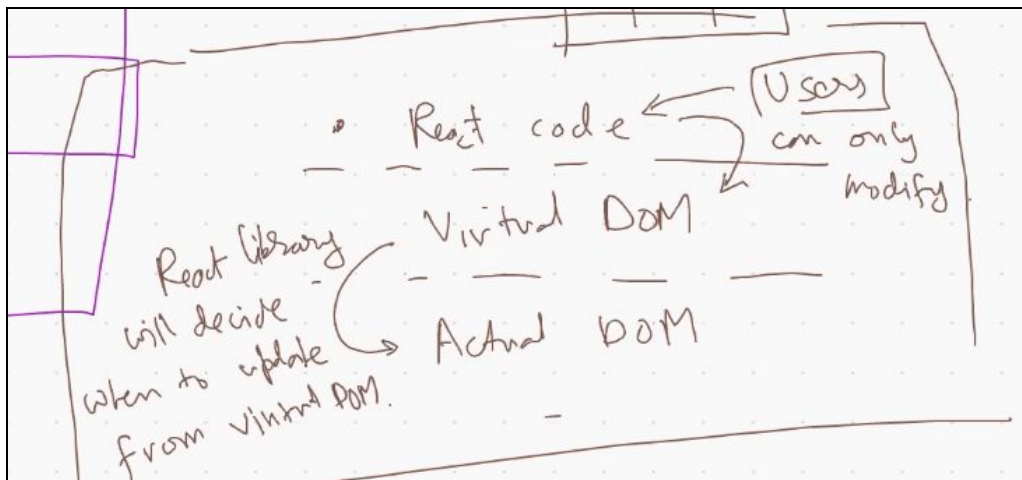 Users
React code
can only
modify
Virtual DOM
React library
will decide
when to update
from virtual DOM.
Actual DOM